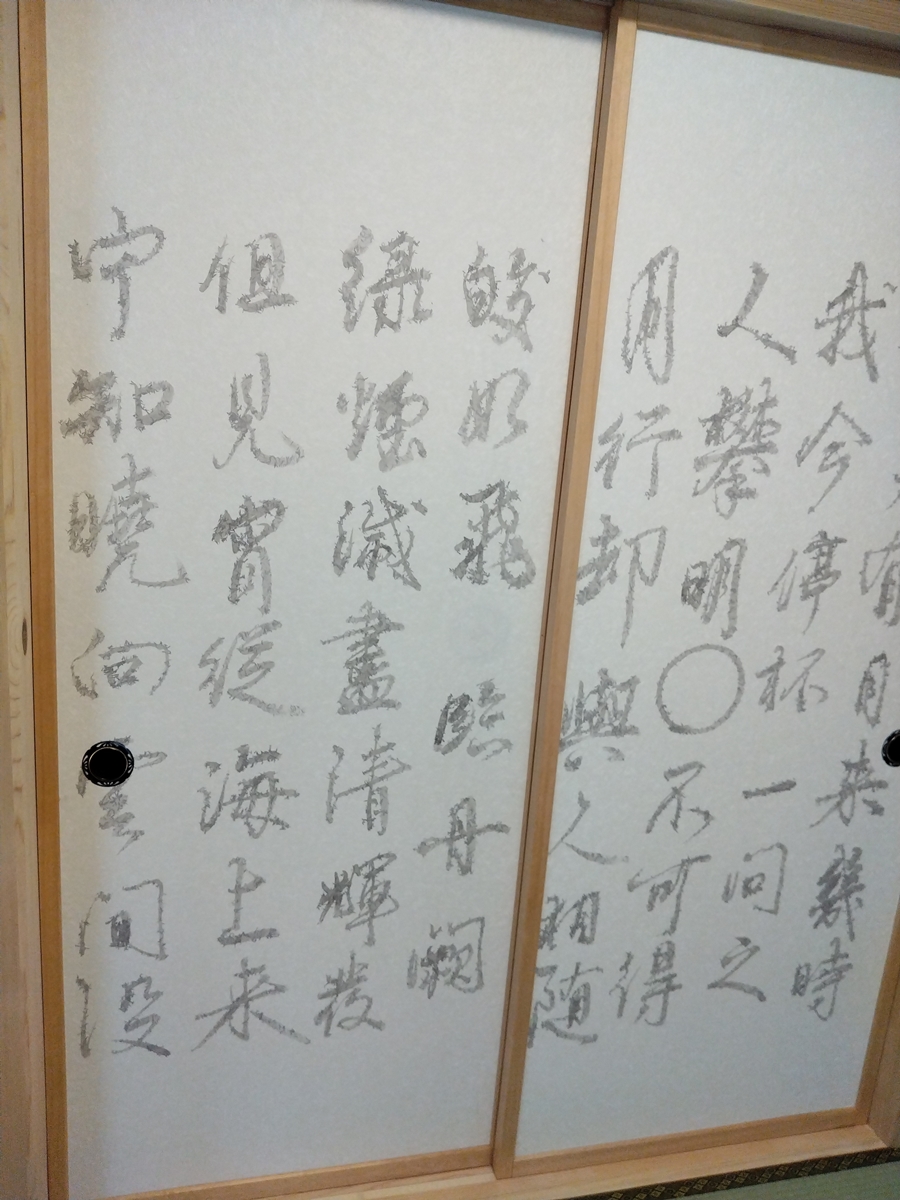 有月来幾時
我今停杯一問之
人攀明〇不可得
月行却與人相随
皎如飛 臨丹闕
緑煙滅盡清輝發
但見宵従海上来
宁知曉向雲間没